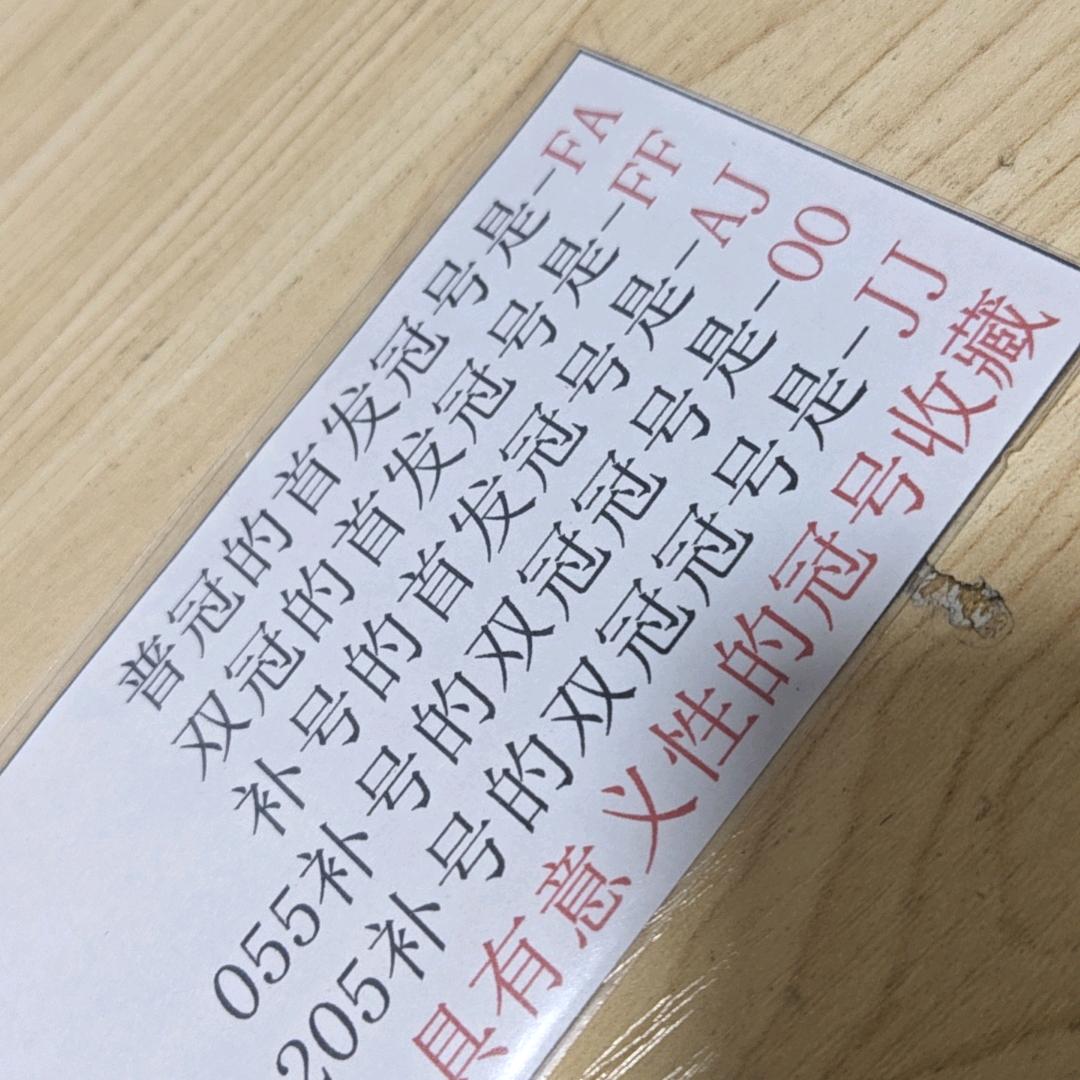 普冠的首发冠号是-FA
双冠的首发冠号是-FF
补号的首发冠号是-AJ
055补号的双冠冠号是-OO
205补号的双冠冠号是-JJ
具有意义性的冠号收藏